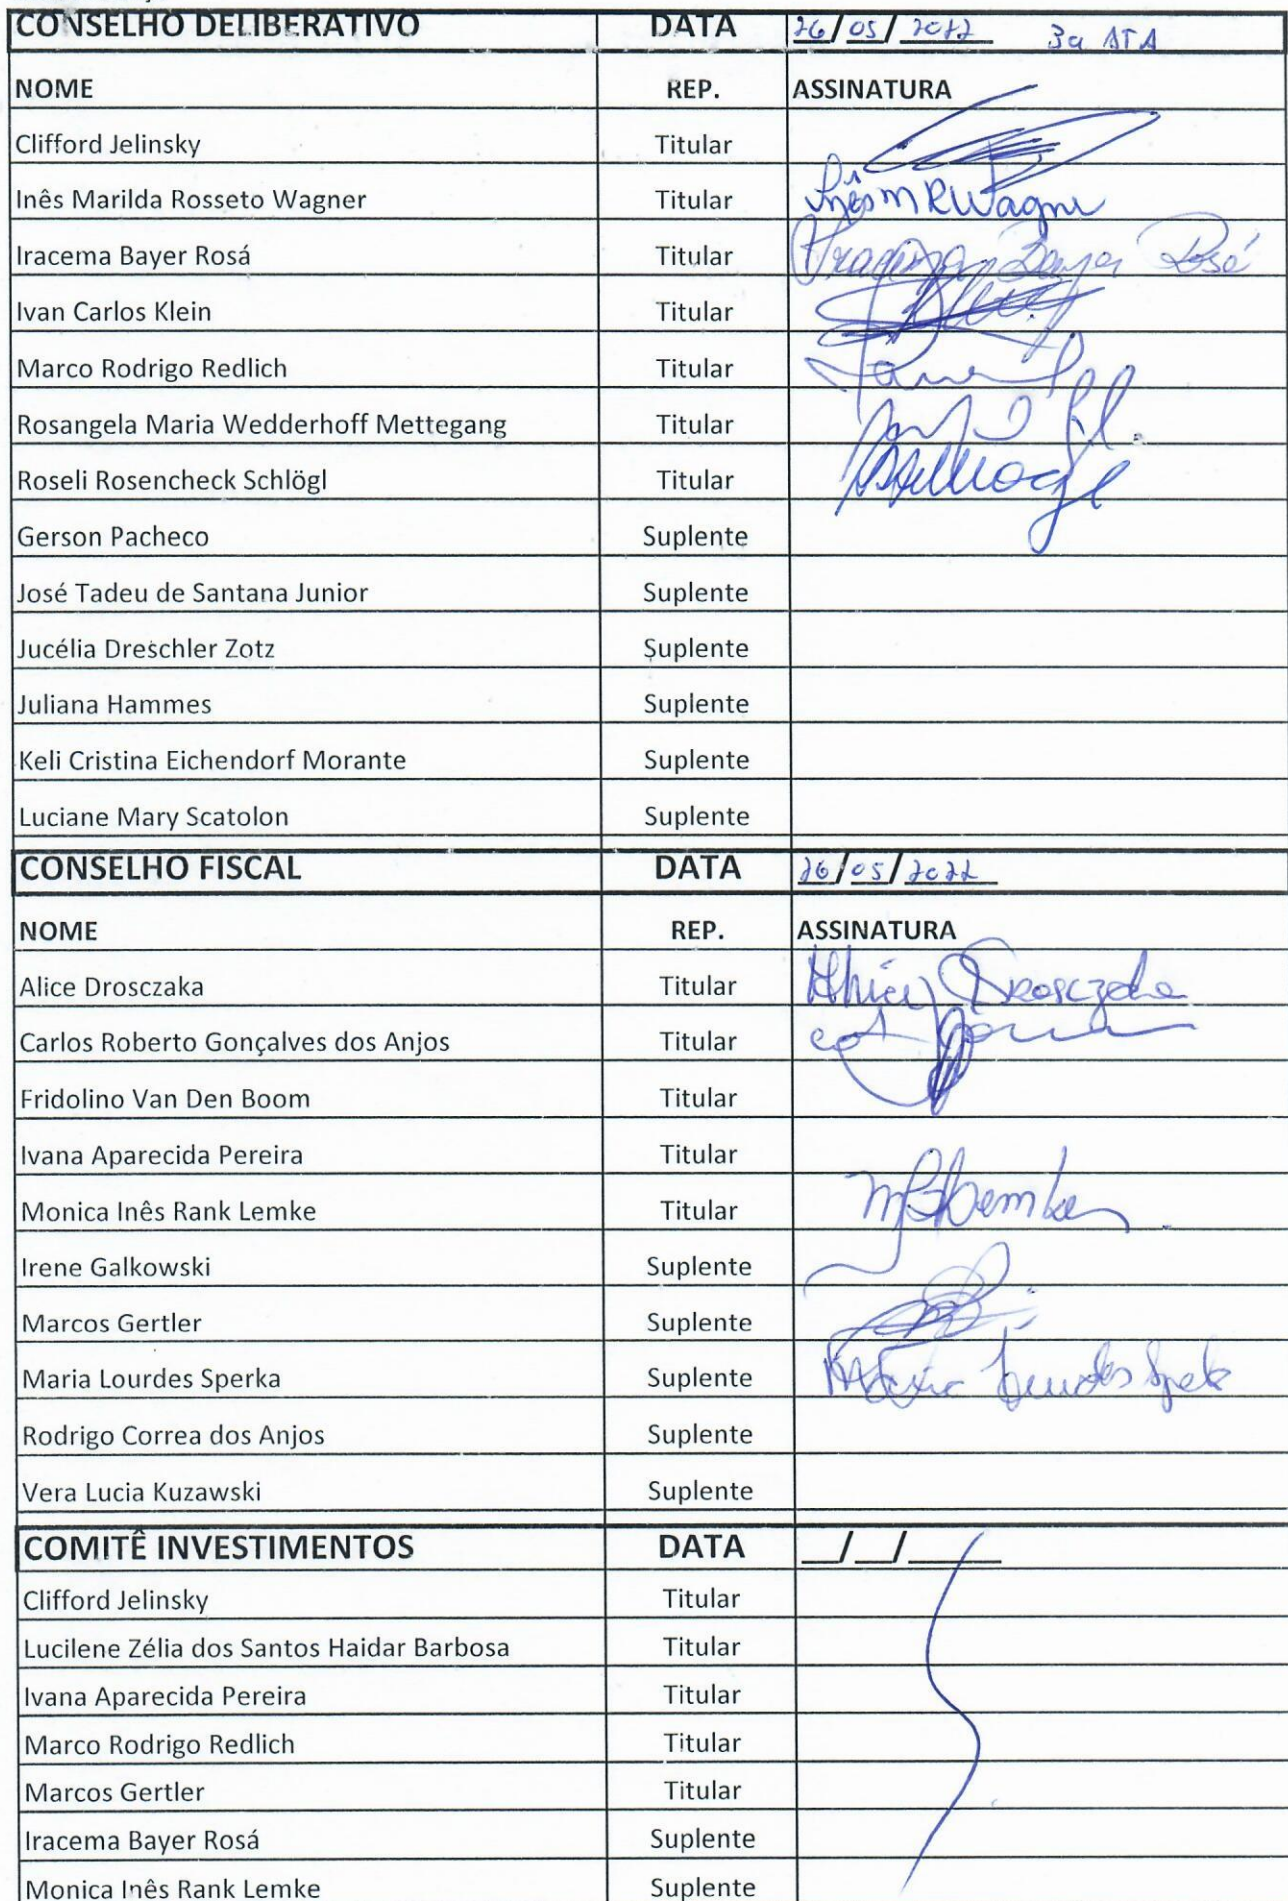 CONSELHO DELIBERATIVO DATA 26/05/2022 3a ATA
NOME REP. ASSINATURA
Clifford Jelinsky Titular
Inês Marilda Rosseto Wagner Titular Inês M R Wagner
Iracema Bayer Rosá Titular Iracema Bayer Rosá
Ivan Carlos Klein Titular
Marco Rodrigo Redlich Titular
Rosangela Maria Wedderhoff Mettegang Titular
Roseli Rosencheck Schlögl Titular
Gerson Pacheco Suplente
José Tadeu de Santana Junior Suplente
Jucélia Dreschler Zotz Suplente
Juliana Hammes Suplente
Keli Cristina Eichendorf Morante Suplente
Luciane Mary Scatolon Suplente
CONSELHO FISCAL DATA 26/05/2022
NOME REP. ASSINATURA
Alice Drosczaka Titular Alice Drosczaka
Carlos Roberto Gonçalves dos Anjos Titular
Fridolino Van Den Boom Titular
Ivana Aparecida Pereira Titular
Monica Inês Rank Lemke Titular
Irene Galkowski Suplente
Marcos Gertler Suplente
Maria Lourdes Sperka Suplente Maria Lourdes Sperka
Rodrigo Correa dos Anjos Suplente
Vera Lucia Kuzawski Suplente
COMITÊ INVESTIMENTOS DATA __/__/____
Clifford Jelinsky Titular
Lucilene Zélia dos Santos Haidar Barbosa Titular
Ivana Aparecida Pereira Titular
Marco Rodrigo Redlich Titular
Marcos Gertler Titular
Iracema Bayer Rosá Suplente
Monica Inês Rank Lemke Suplente